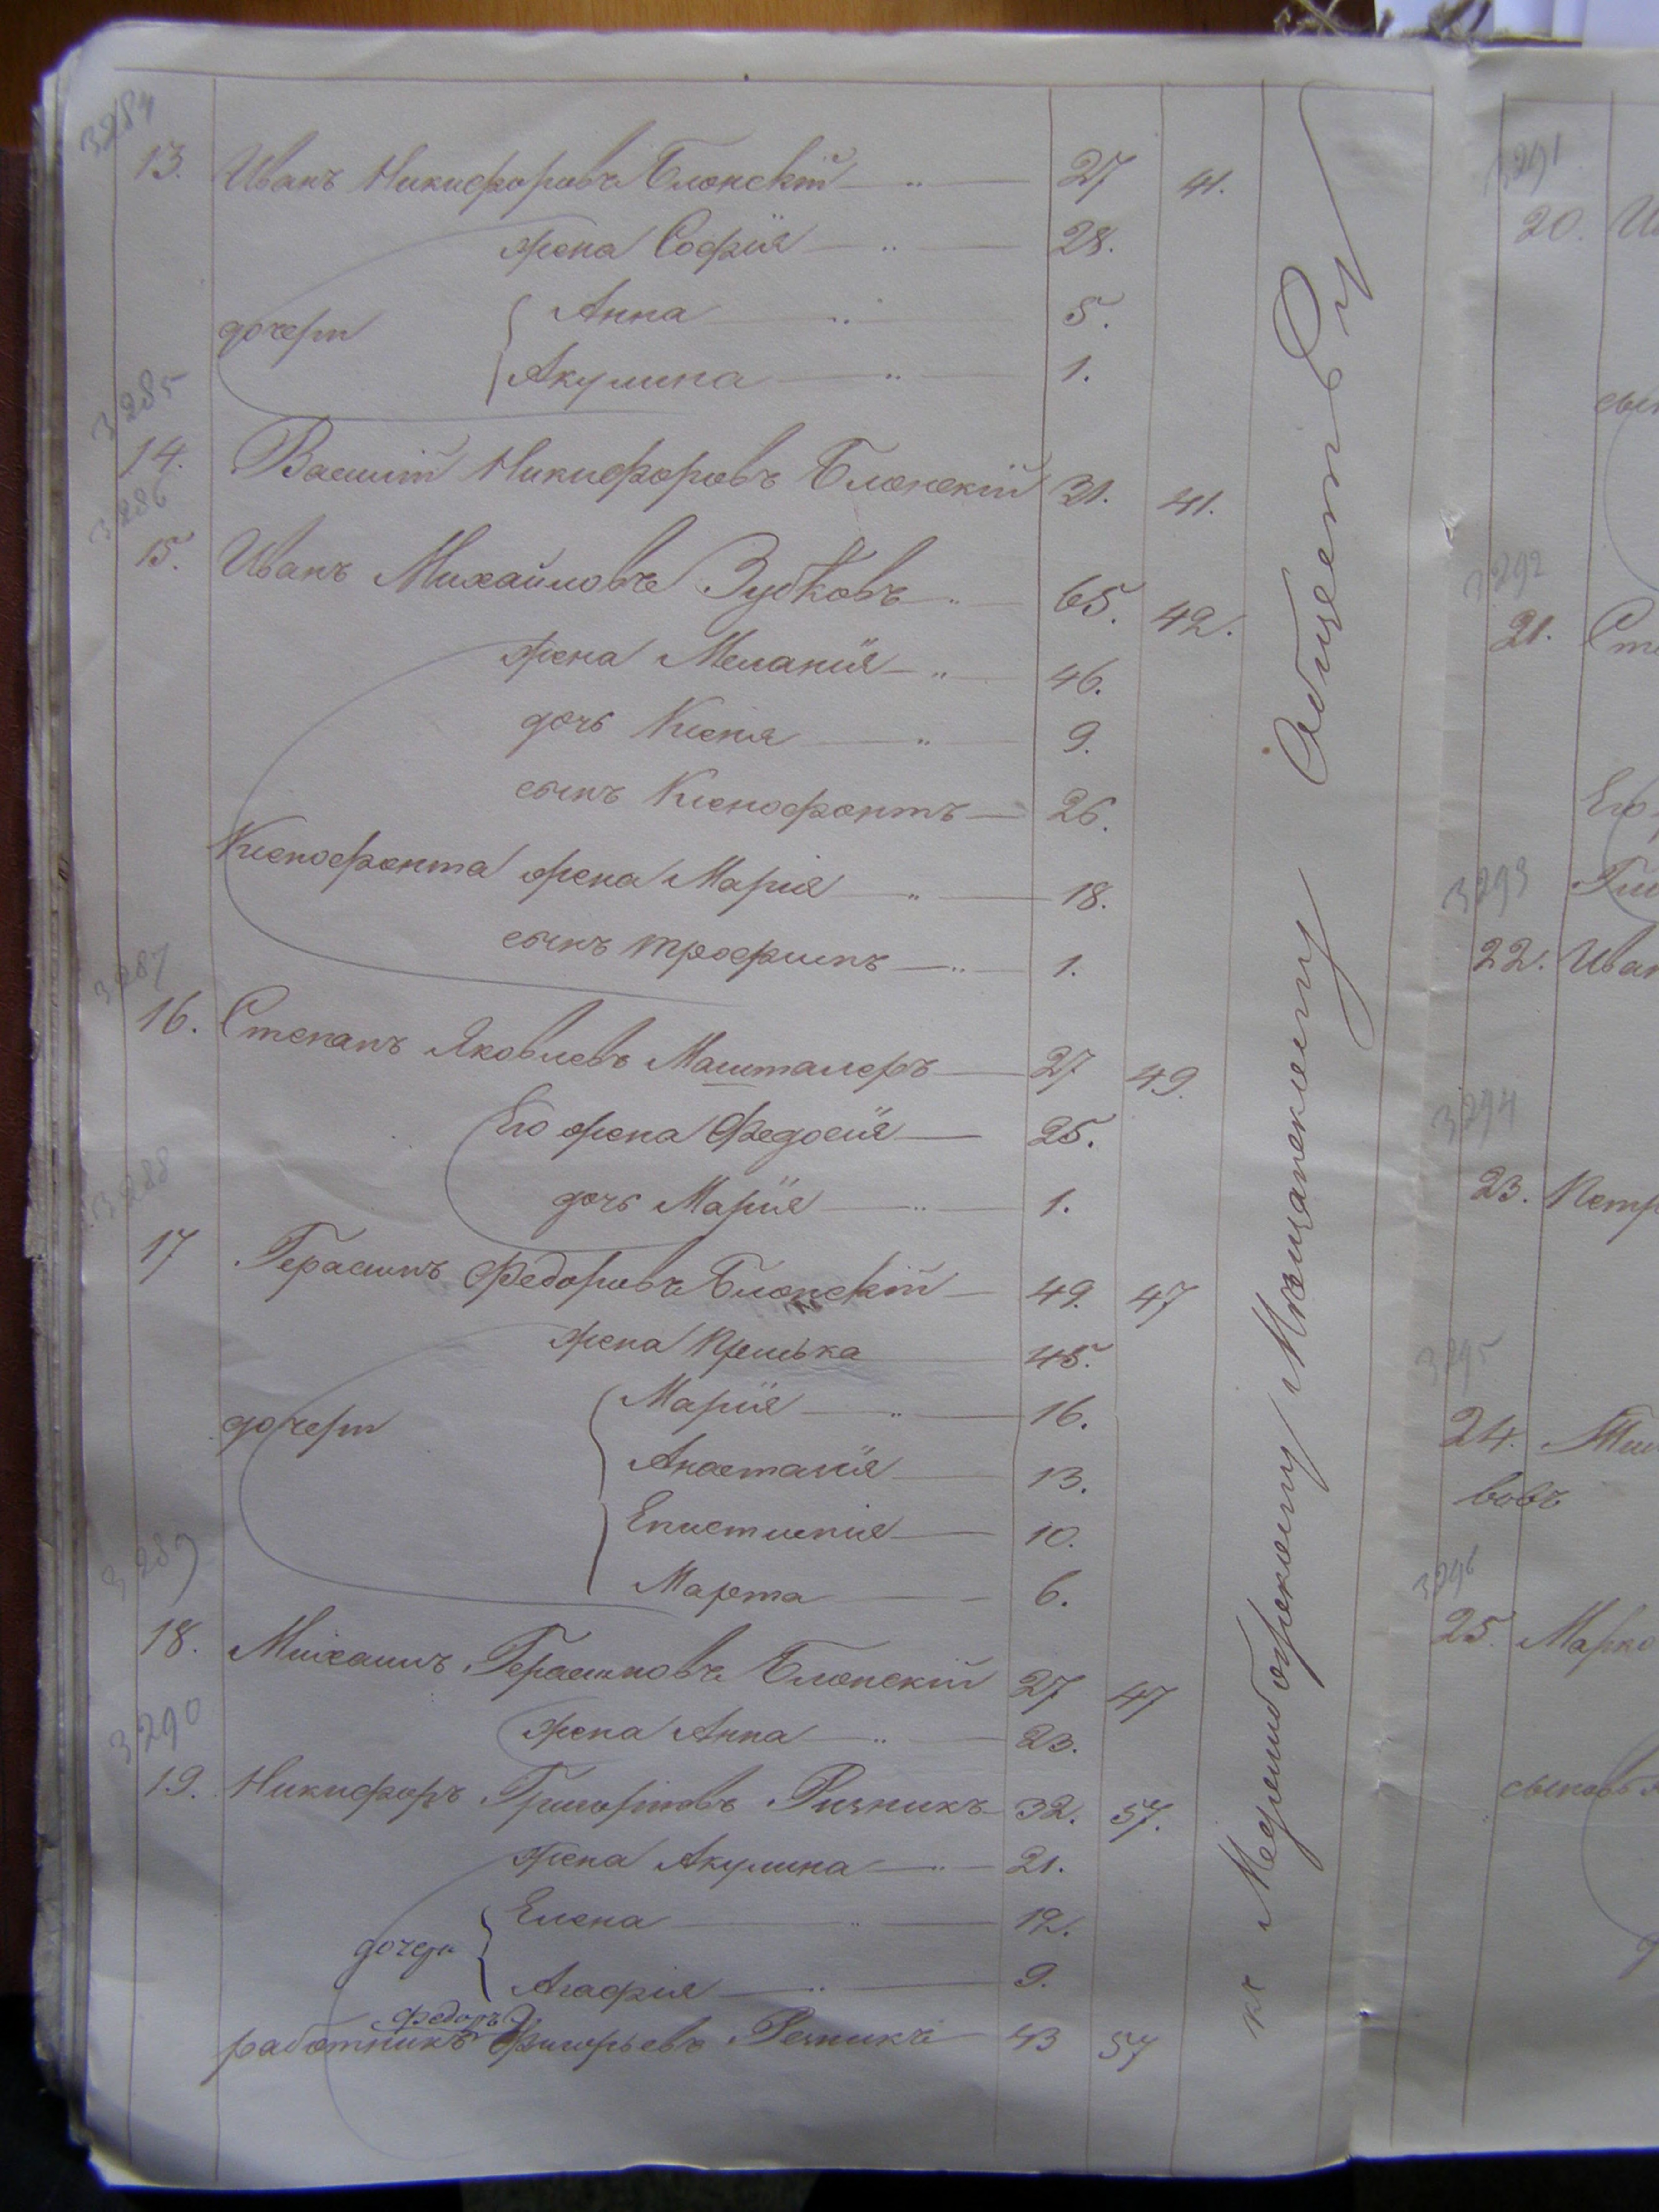 3284
13. Иванъ Никифоровъ Блонскій 27 41.
жена Софія 28.
дочери
Анна 5.
Акулина 1.
3285
14. Василій Никифоровъ Блонскій 31. 41.
3286
15. Иванъ Михайловъ Зубковъ 65. 42.
жена Меланія 46.
дочь Ксенія 9.
сынъ Ксенофонтъ 26.
Ксенофонта жена Марія 18.
сынъ Трофимъ 1.
3287
16. Степанъ Яковлевъ Машталеръ 27 49.
Его жена Федосія 25.
дочь Марія 1.
3288
17 Герасимъ Федоровъ Блонскій 49. 47
жена 45.
дочери
Марія 16.
Анастасія 13.
Епистимія 10.
Марта 6.
3289
18. Михаилъ Герасимовъ Блонскій 27 47
жена Анна 23.
3290
19. Никифоръ Григоріевъ Ризникъ 32. 57.
жена Акулина 21.
дочери
Елена 12.
Агафія 9.
Федоръ
работникъ Григорьевъ 43 57
къ Меджибожскому Мѣщанскому Обществу
3291
20. И
сын
3292
21. Сте
Его
3293
22. Иван
3294
23. Петр
3295
24.
вовъ
3296
25. Марко
сыновья